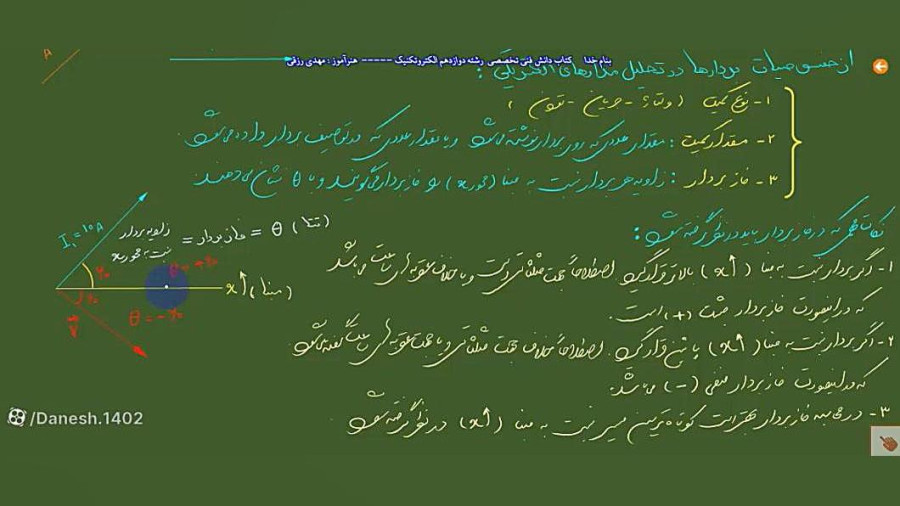 بنام خدا کتاب دانش فنی تخصصی رشته دوازدهم الکتروتکنیک ----- هنرآموز : مهدی رزقی
از خصوصیات بردارها در تحلیل مدارهای الکتریکی :
۱- نوع کمیت ( ولتاژ - جریان - توان )
۲- مقدار کمیت : مقدار عددی که روی بردار نوشته می‌شود و یا مقدار عددی که در توصیف بردار داده می‌شود
۳- فاز بردار : زاویه هر بردار نسبت به مبنا ( محور x ) را فاز بردار می‌گویند و با θ نشان می‌دهند
زاویه بردار نسبت به محور x = فاز بردار = θ ( تتا )
I₁ = 10A
x↑ ( مبنا )
نکاتی که در فاز بردار باید در نظر گرفته شود :
۱- اگر بردار نسبت به مبنا ( x↑ ) بالاتر قرار گیرد اصطلاحاً جهت مثلثاتی است و یا خلاف عقربه‌های ساعت می‌باشد
که در اینصورت فاز بردار مثبت (+) است .
۲- اگر بردار نسبت به مبنا ( x↑ ) پایین قرار گیرد اصطلاحاً خلاف جهت مثلثاتی و یا جهت عقربه‌های ساعت گفته می‌شود
که در اینصورت فاز بردار منفی (-) می‌باشد .
۳- در محاسبه فاز بردار بهتر است کوتاه‌ترین مسیر نسبت به مبنا ( x↑ ) در نظر گرفته شود
/Danesh.1402